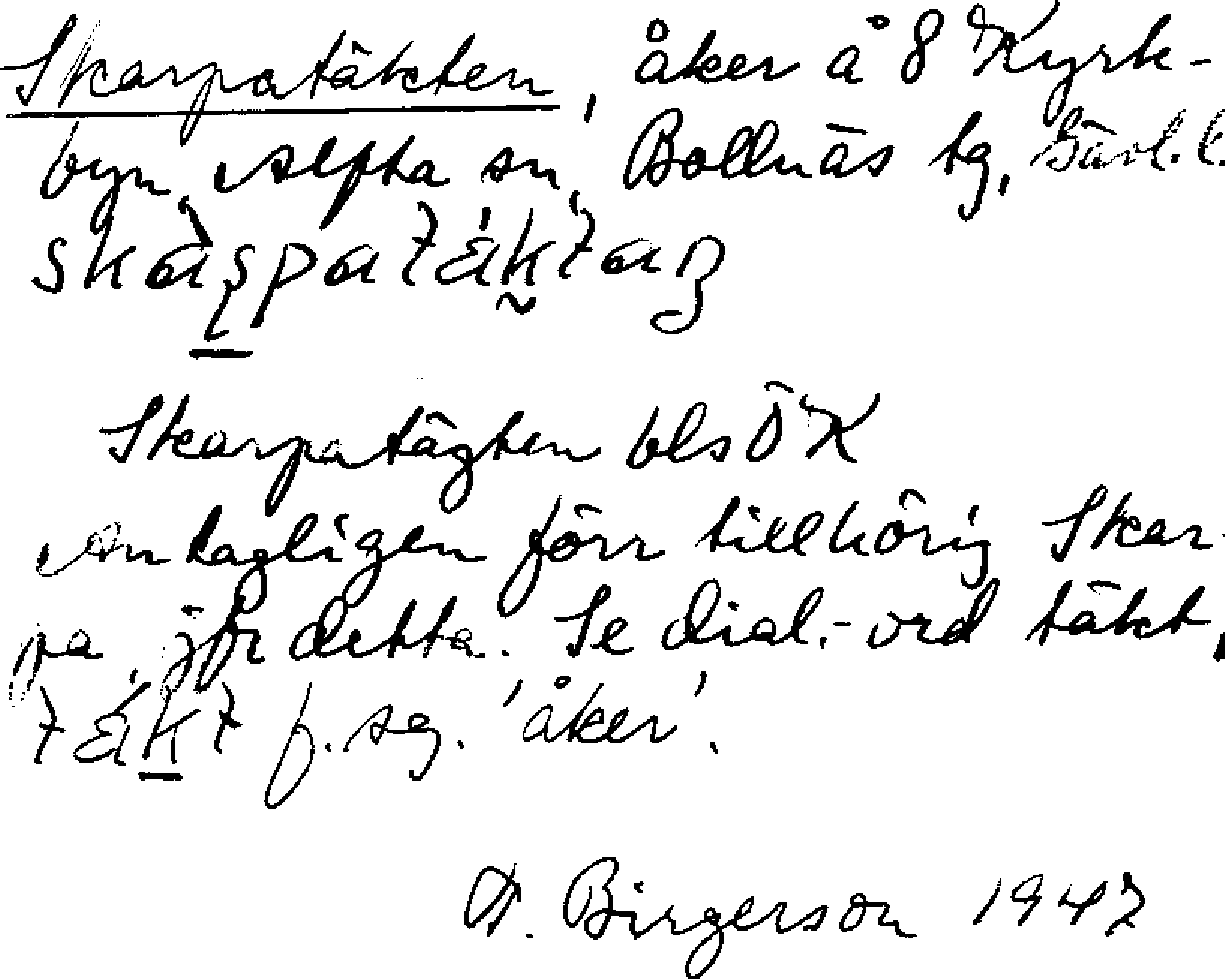 Skarpatäkten, åker å 8 Kyrk-
byn, Alfta sn, Bollnäs tg, Gävl. l.
Skarpatägten bls ÖK
Antagligen förr tillhörig Skar-
pa, jfr detta. Se dial.-ord täkt,
f. sg. 'åker'.
H. Birgerson 1947